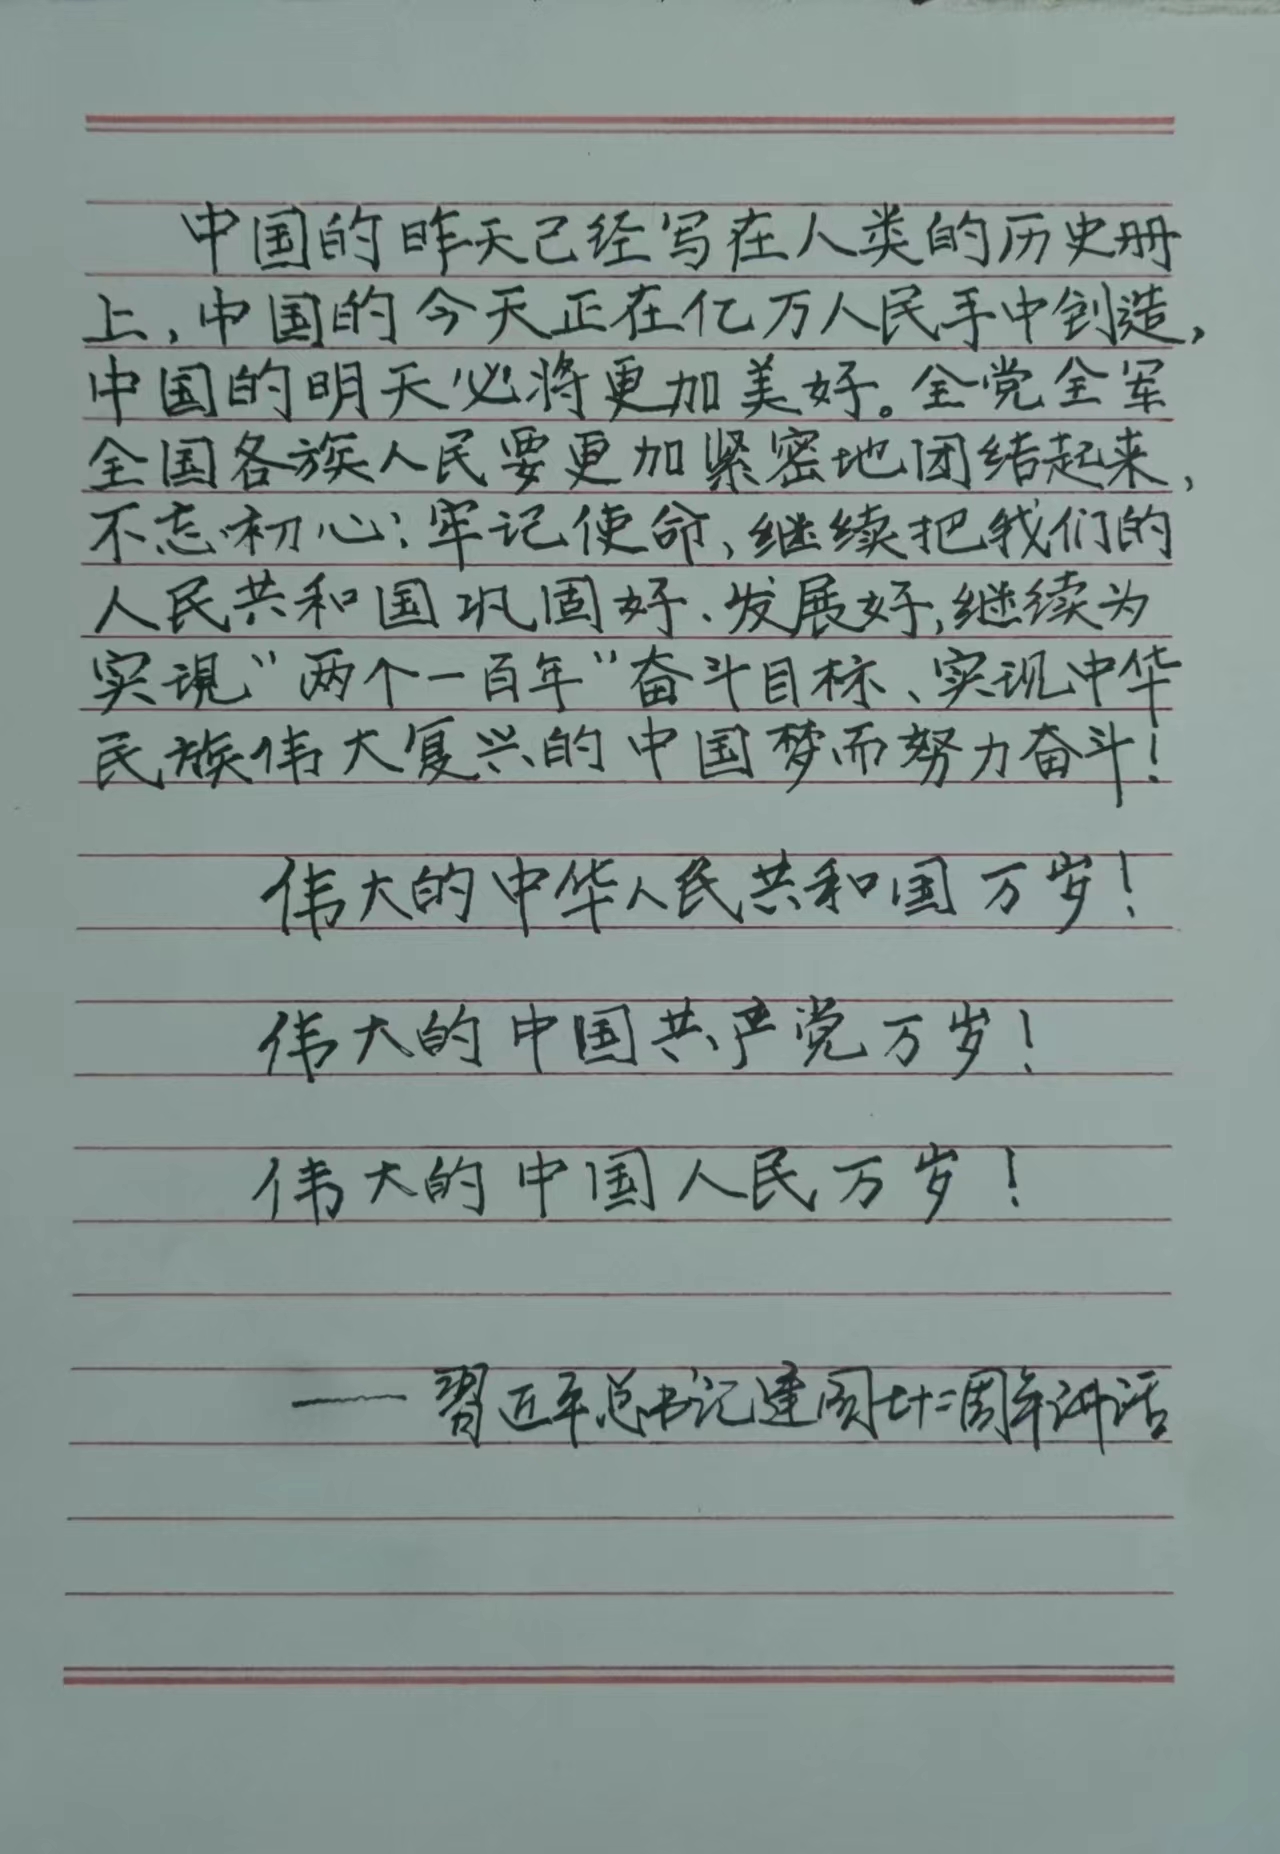 中国的昨天已经写在人类的历史册
上，中国的今天正在亿万人民手中创造，
中国的明天必将更加美好。全党全军
全国各族人民要更加紧密地团结起来，
不忘初心；牢记使命，继续把我们的
人民共和国巩固好、发展好，继续为
实現“两个一百年”奋斗目标、实现中华
民族伟大复兴的中国梦而努力奋斗！
伟大的中华人民共和国万岁！
伟大的中国共产党万岁！
伟大的中国人民万岁！
——習近平总书记建国七十二周年讲话